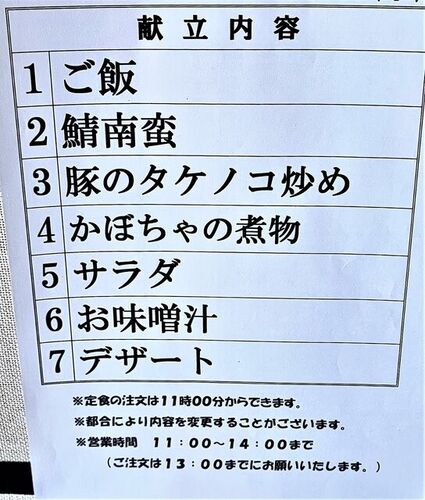 献立内容
1 ご飯
2 鯖南蛮
3 豚のタケノコ炒め
4 かぼちゃの煮物
5 サラダ
6 お味噌汁
7 デザート
※定食の注文は11時00分からできます。
※都合により内容を変更することがございます。
※営業時間　11：00～14：00まで
（ご注文は13：00までにお願いいたします。）